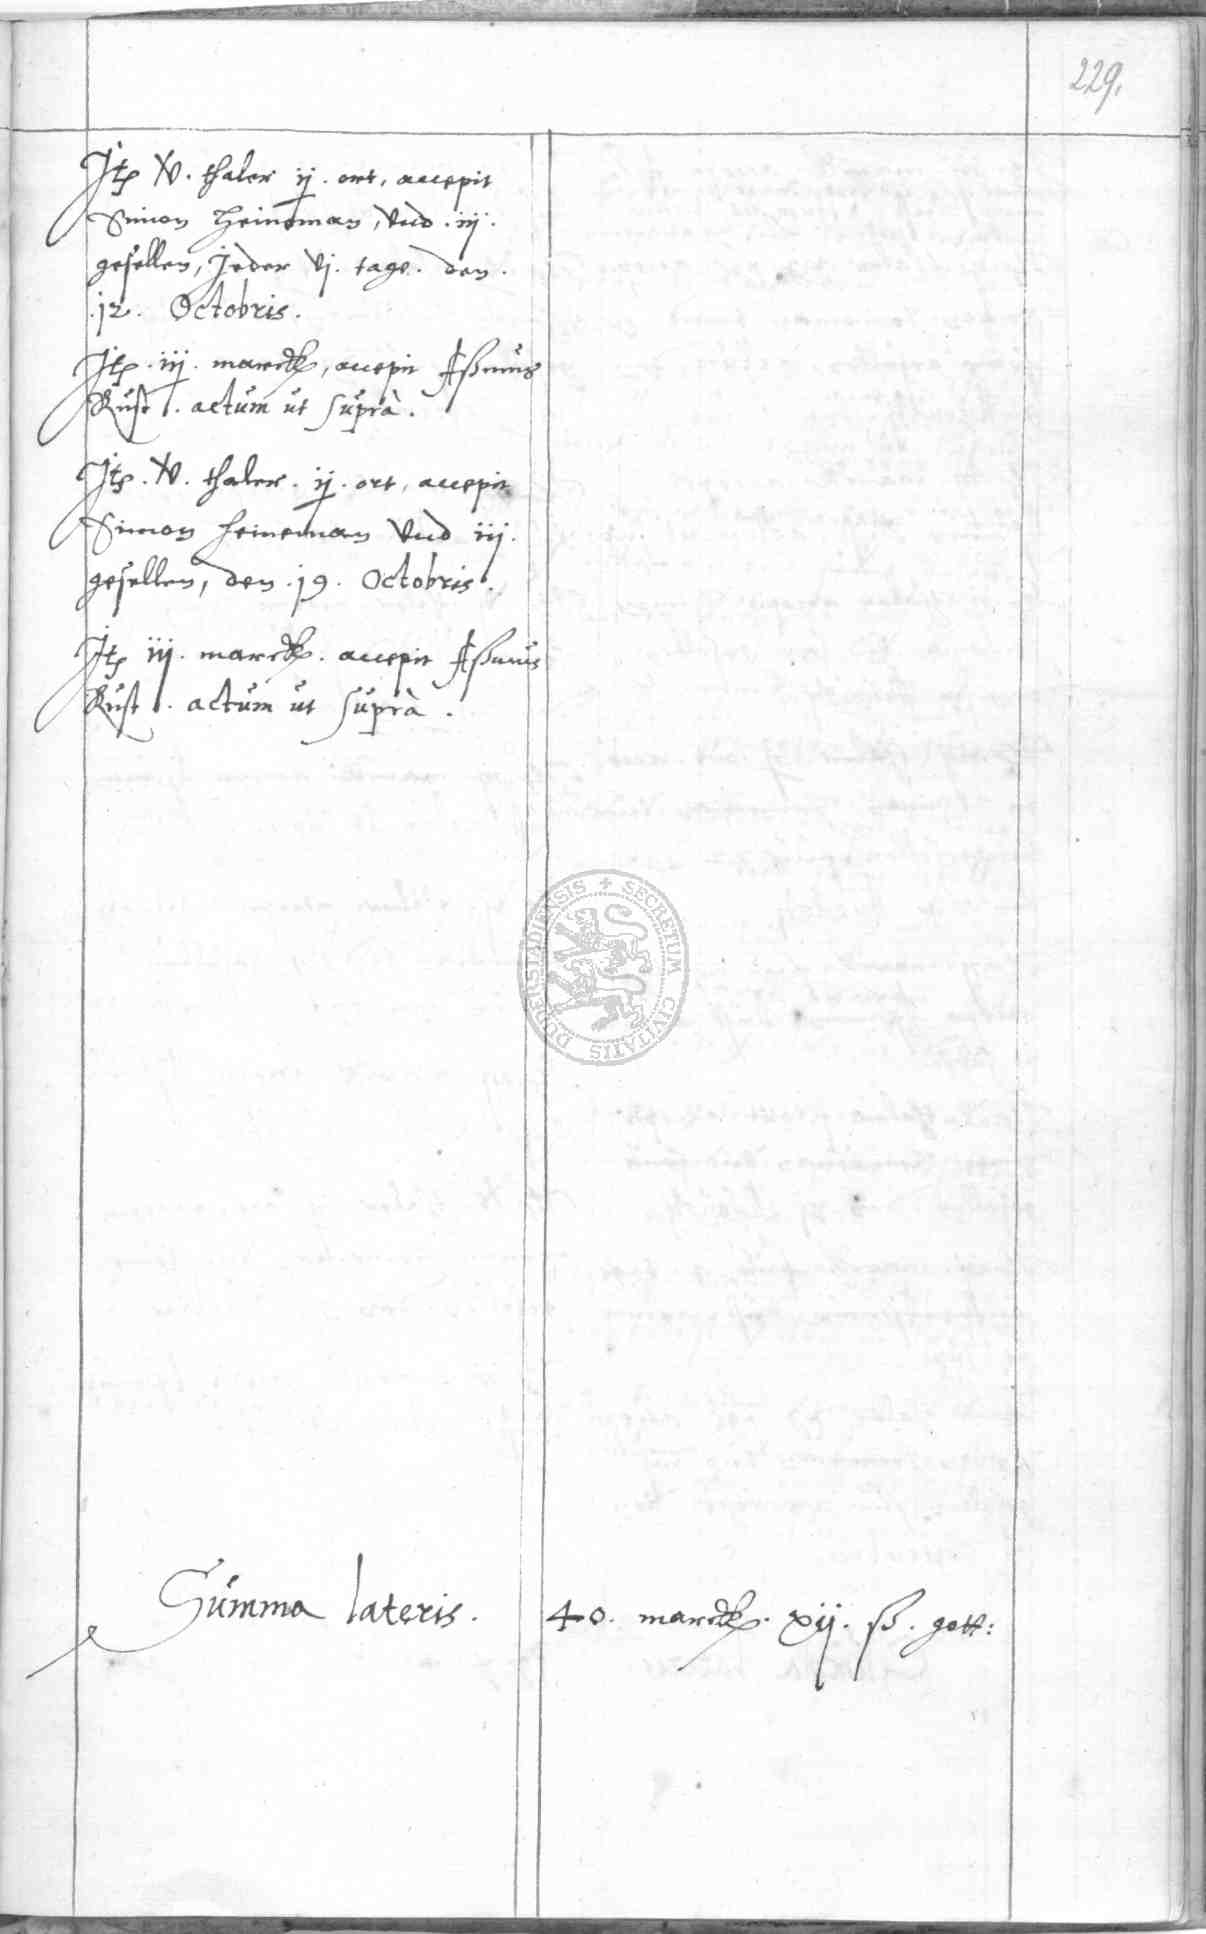 229.
Itp v. thaler ij. ort, accepit
Simon Heineman, vnd .iij.
gesellen, Jeder vj. tage. den.
.12. Octobris.
Itp .iij. marck, accepit Aßmus
Rust. actum ut suprà.
Itp. v. thaler. ij. ort, accepit
Simon Heineman vnd iij.
gesellen, den .19. Octobris.
Itp iij. marck. accepit Aßmus
Rust. actum ut suprà.
SECRETUM CIVITATIS DUDERSTADIENSIS
Summa lateris. 40. marck. xij. ß. gott: